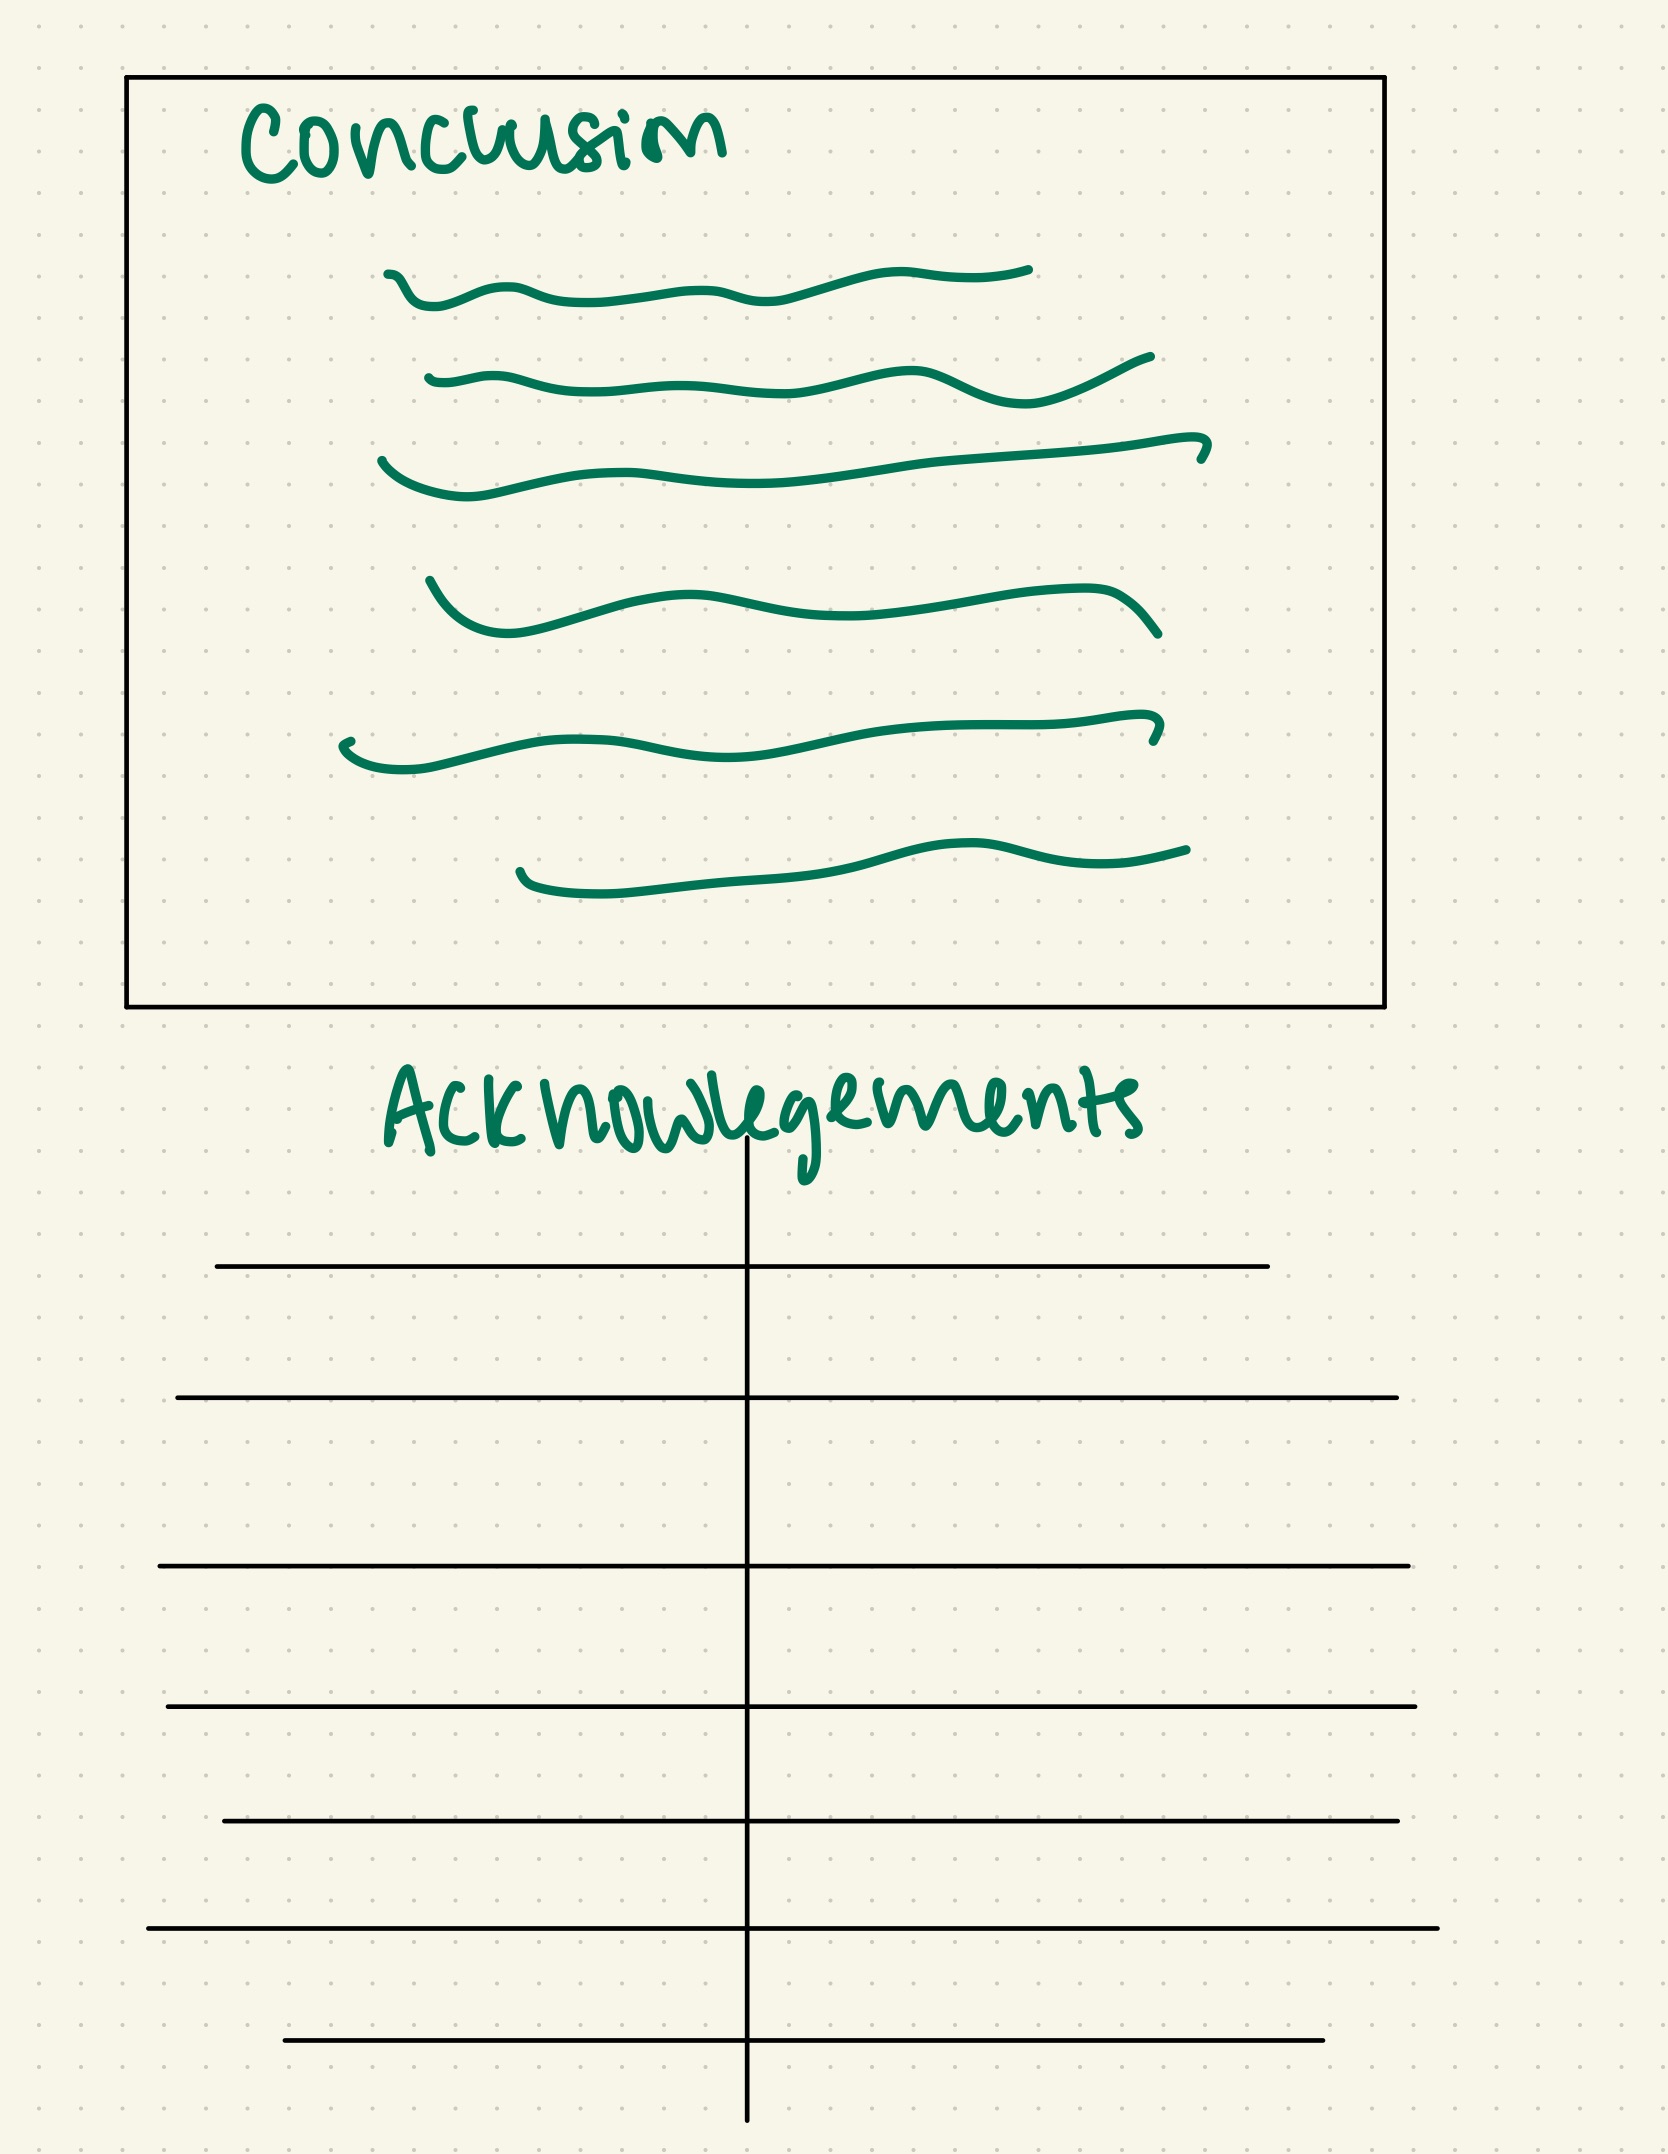 Conclusion
Acknowlegements